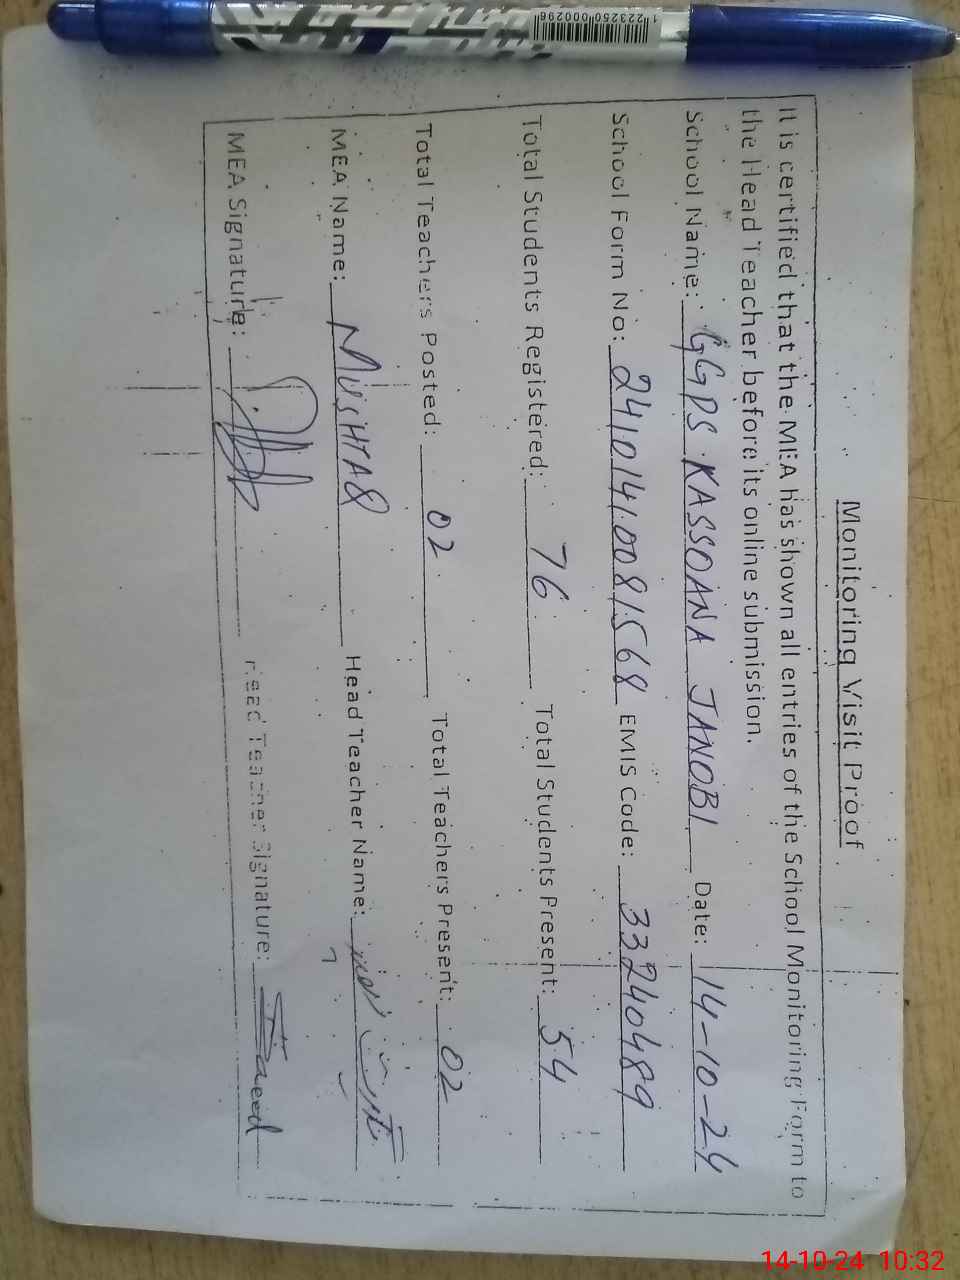 Monitoring Visit Proof
It is certified that the MEA has shown all entries of the School Monitoring Form to
the Head Teacher before its online submission.
School Name: GGPS KASSOANA JANOBI Date: 14-10-24
School Form No: 24101410081568 EMIS Code: 33240489
Total Students Registered: 76 Total Students Present: 54
Total Teachers Posted: 02 Total Teachers Present: 02
MEA Name: MUSHTAQ Head Teacher Name:
MEA Signature: Head Teacher Signature: Saeed
1223250 000296
14-10-24 10:32